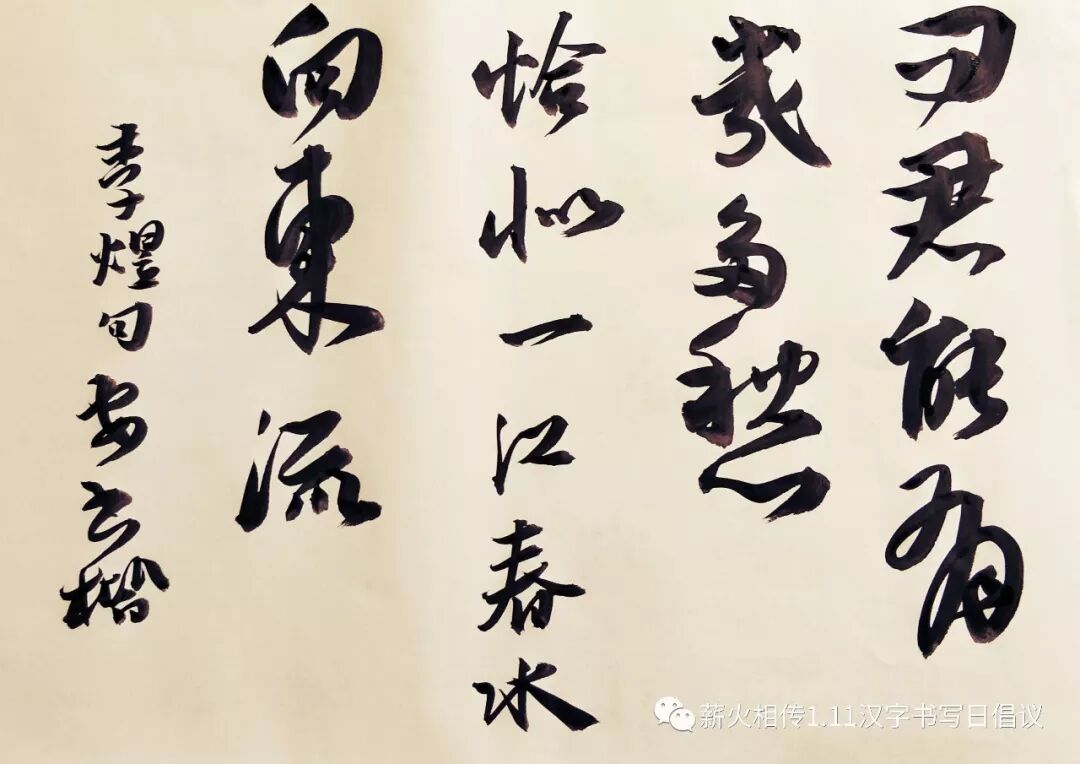 問君能有
幾多愁
恰似一江春水
向東流
李煜句安云楷
薪火相传1.11汉字书写日倡议